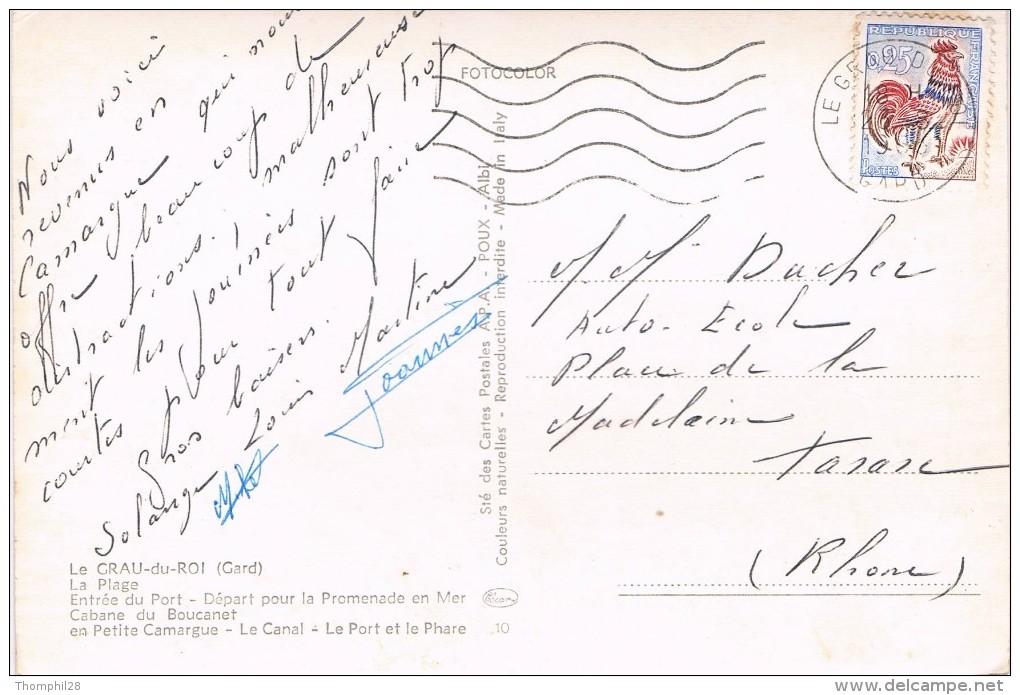 Nous voici
revenus en
Camargue qui nous
offre beaucoup de
distractions. malheureuse
ment les journées sont trop
courtes pour tout faire
Gros baisers.
Solange Louis Martine
Joannès
FOTOCOLOR
Sté des Cartes Postales A.P.A. - POUX - Albi
Couleurs naturelles - Reproduction interdite - Made in Italy
REPUBLIQUE FRANÇAISE
0,25
POSTES
LE GR
GARD
M. M. Ducher
Auto-Ecole
Place de la
Madelaine
Tarare
(Rhone)
Le GRAU-du-ROI (Gard)
La Plage
Entrée du Port - Départ pour la Promenade en Mer
Cabane du Boucanet
en Petite Camargue - Le Canal - Le Port et le Phare
10
Thomphil28
www.delcampe.net